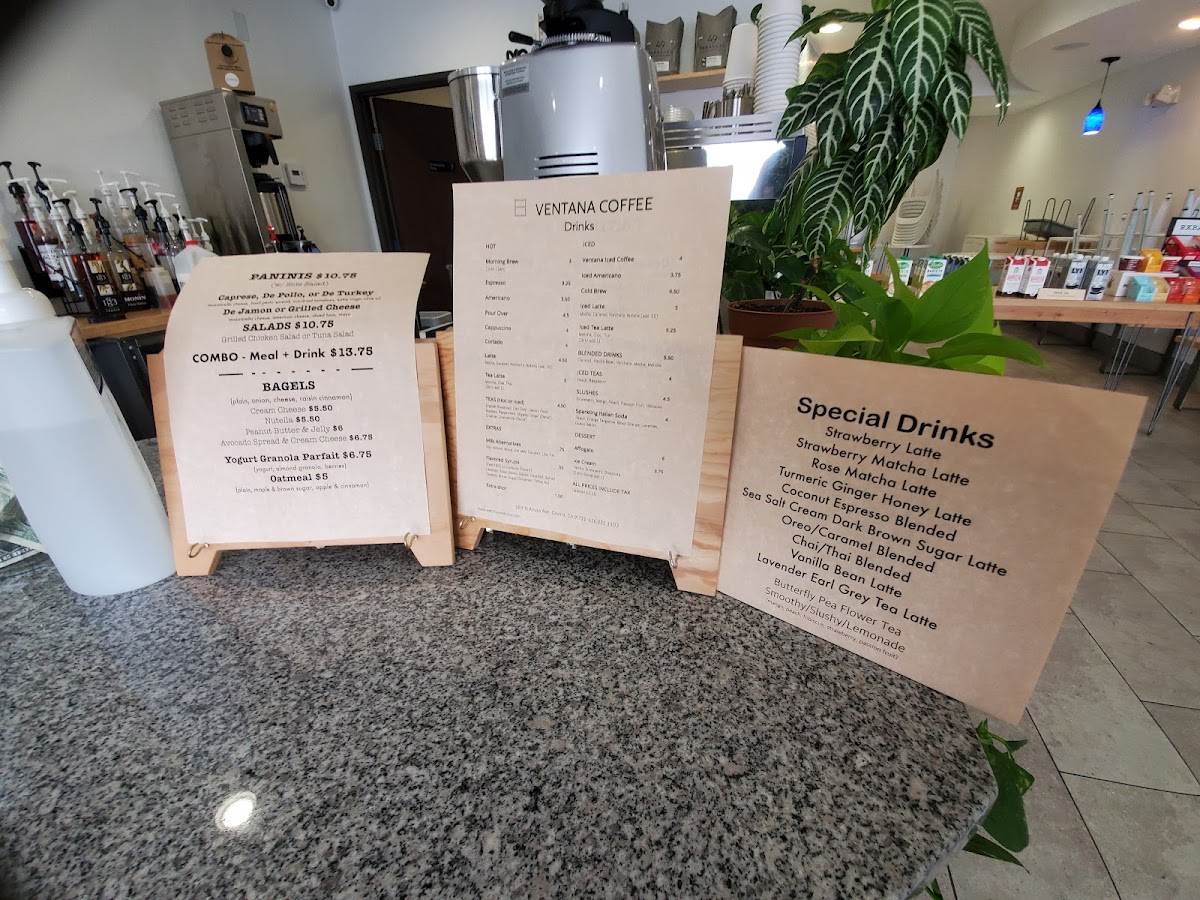 PANINIS $10.75
(w/ Side Salad)
Caprese, De Pollo, or De Turkey
De Jamon or Grilled Cheese
SALADS $10.75
Grilled Chicken Salad or Tuna Salad
COMBO - Meal + Drink $13.75
BAGELS
(plain, onion, cheese, raisin cinnamon)
Cream Cheese $5.50
Nutella $5.50
Peanut Butter & Jelly $6
Avocado Spread & Cream Cheese $6.75
Yogurt Granola Parfait $6.75
(yogurt, almond granola, berries)
Oatmeal $5
(plain, maple & brown sugar, apple & cinnamon)
VENTANA COFFEE
Drinks
HOT
Morning Brew 3
Espresso 3.25
Americano 3.50
Pour Over 4.5
Cappuccino 4
Cortado 4
Latte 4.50
Tea Latte 5
TEAS (Hot or Iced) 4.50
EXTRAS
Milk Alternatives .75
Flavored Syrups
Extra shot 1.00
ICED
Ventana Iced Coffee 4
Iced Americano 3.75
Cold Brew 4.50
Iced Latte 5
Iced Tea Latte 5.25
BLENDED DRINKS 5.50
ICED TEAS
Peach, Raspberry
SLUSHIES 4.5
Sparkling Italian Soda 4
DESSERT
Affogato 6
Ice Cream 3.75
ALL PRICES INCLUDE TAX
Special Drinks
Strawberry Latte
Strawberry Matcha Latte
Rose Matcha Latte
Turmeric Ginger Honey Latte
Coconut Espresso Blended
Sea Salt Cream Dark Brown Sugar Latte
Oreo/Caramel Blended
Chai/Thai Blended
Vanilla Bean Latte
Lavender Earl Grey Tea Latte
Butterfly Pea Flower Tea
Smoothy/Slushy/Lemonade
(mango, peach, hibiscus, strawberry, passion fruit)
MONIN
RXBA